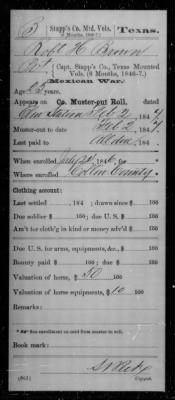 5 Stapp's Co. Mtd. Vols. Texas.
(6 Months, 1846-7.)
Robt H Brown
Pvt, Capt. Stapp's Co., Texas Mounted
Vols. (6 Months, 1846-7.)
(Mexican War.)
Age years.
Appears on Co. Muster-out Roll, dated
Feb 2, 1847
Muster-out to date Feb 2, 1847
Last paid to
When enrolled 1846,
Where enrolled Collin County
Clothing account:
Last settled , 184 ; drawn since $ 100
Due soldier $ 100; due U. S. $ 100
Am't for cloth'g in kind or money adv'd $ 100
Due U. S. for arms, equipments, &c., $ 100
Bounty paid $ 100; due $ 100
Valuation of horse, $ 50 100
Valuation of horse equipments, $ 10 100
Remarks:
Book mark:
(861) Copyist.